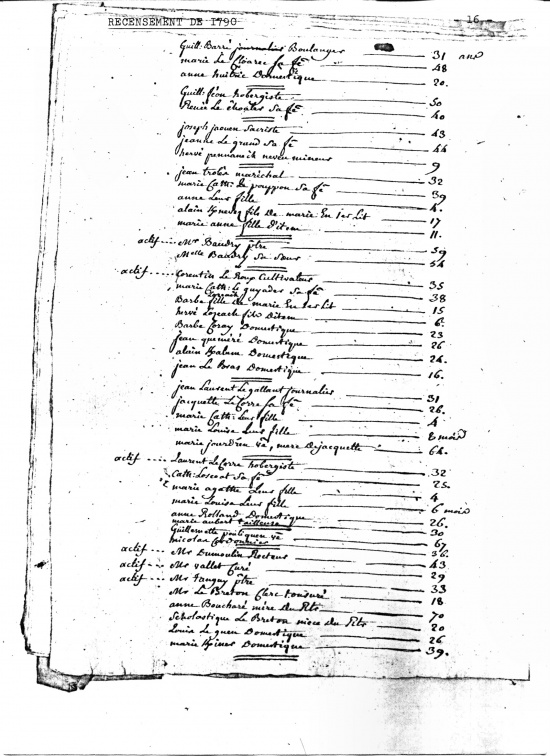 RECENSEMENT DE 1790
16.
Guill: Barré journalier Boulanger 31 ans
marie Le Cloarec sa fê 48
anne huitric Domestique 20.
Guill: féon hobergiste 50
Renée Le sa fê 40
joseph jaouen Sacriste 43
jeanne Le grand sa fê 44
hervé pennanech neveu mineur 9
jean marichal 32
marie Cath: De poulpyon sa fê 39
anne Leur fille 4.
alain fils De marie En 1er Lit 17
marie anne fille d'item 11.
actif --- Mr Baudry ptre 59
Melle Baudry sa sœur 54
actif --- Corentin Le Roux Cultivateur 35
marie Cath: Le guyader sa fê 38
Barbe fille de marie En 1er Lit 15
hervé fils Ditem 6.
Barbe Coray Domestique 23
jean quéméré Domestique 26
alain Domestique 24.
jean Le Bras Domestique 16.
jean Laurent Le gallant journalier 31
jacquette Le Corre sa fê 26.
marie Cath: Leur fille 4
marie Louise Leur fille 8 mois
marie jourdren vê, mere De jacquette 64.
actif --- Laurent Le Corre hobergiste 32
Cath: Loscoat sa fê 25.
marie agathe Leur fille 4
marie Louise Leur fille 6 mois
anne Rolland Domestique 26.
marie aubert tailleuse 30
Guillemette pouliquen vê 67
nicolas Cordonnier 36.
actif --- Mr Dumoulin Recteur 43
actif --- Mr Vallet Curé 29
actif --- Mr Tanguy ptre 33
Mr Le Breton Clerc tonsuré 18
anne Boucharé mère du Ptre 70
Scholastique Le Breton niece du Ptre 20
Louise Le guen Domestique 26
marie Domestique 39.